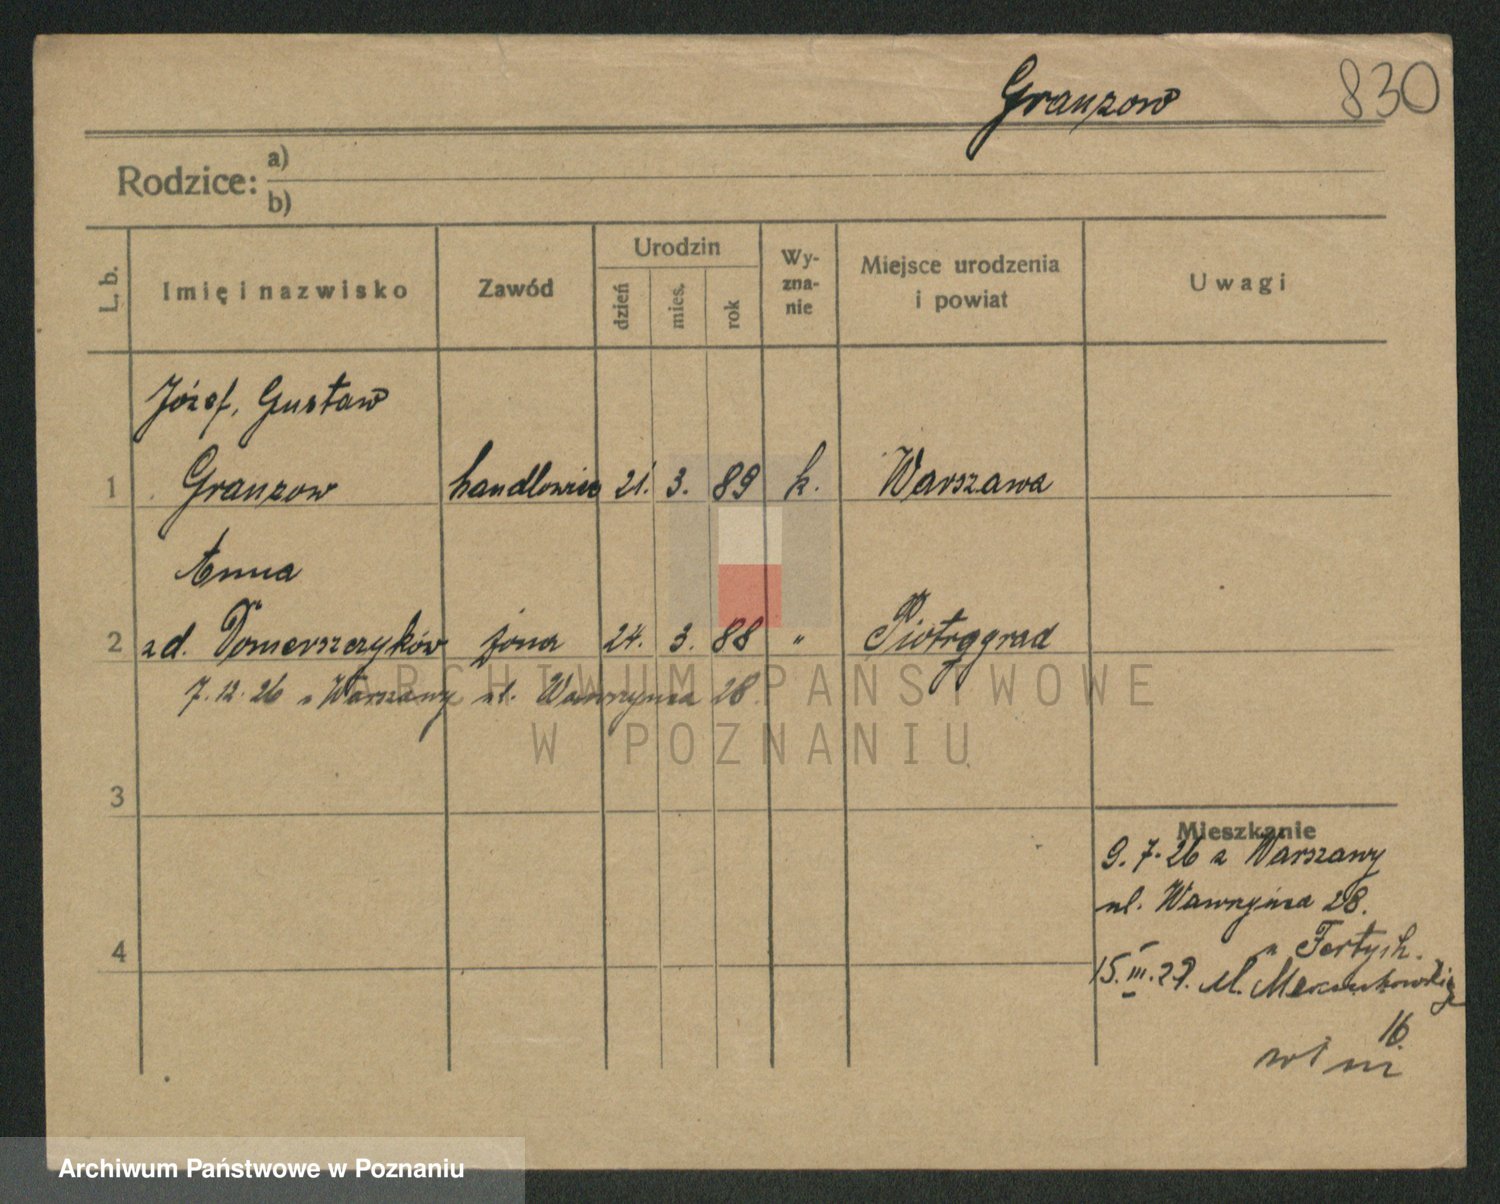 Granzow
830
Rodzice: a)
b)
L. b.
Imię i nazwisko
Zawód
Urodzin
dzień
mies.
rok
Wy-
zna-
nie
Miejsce urodzenia
i powiat
Uwagi
Józef, Gustaw
1 Granzow handlowiec 21. 3. 89 k. Warszawa
Anna
2 z d. Domerszczyków żona 24. 3. 88 " Piotrograd
7.12.26 z Warszawy ul. Wawrzyńca 28
ARCHIWUM PAŃSTWOWE
W POZNANIU
3
4
Mieszkanie
9.7.26 z Warszawy
ul. Wawrzyńca 28.
15.III.29. ul.
16.
Archiwum Państwowe w Poznaniu